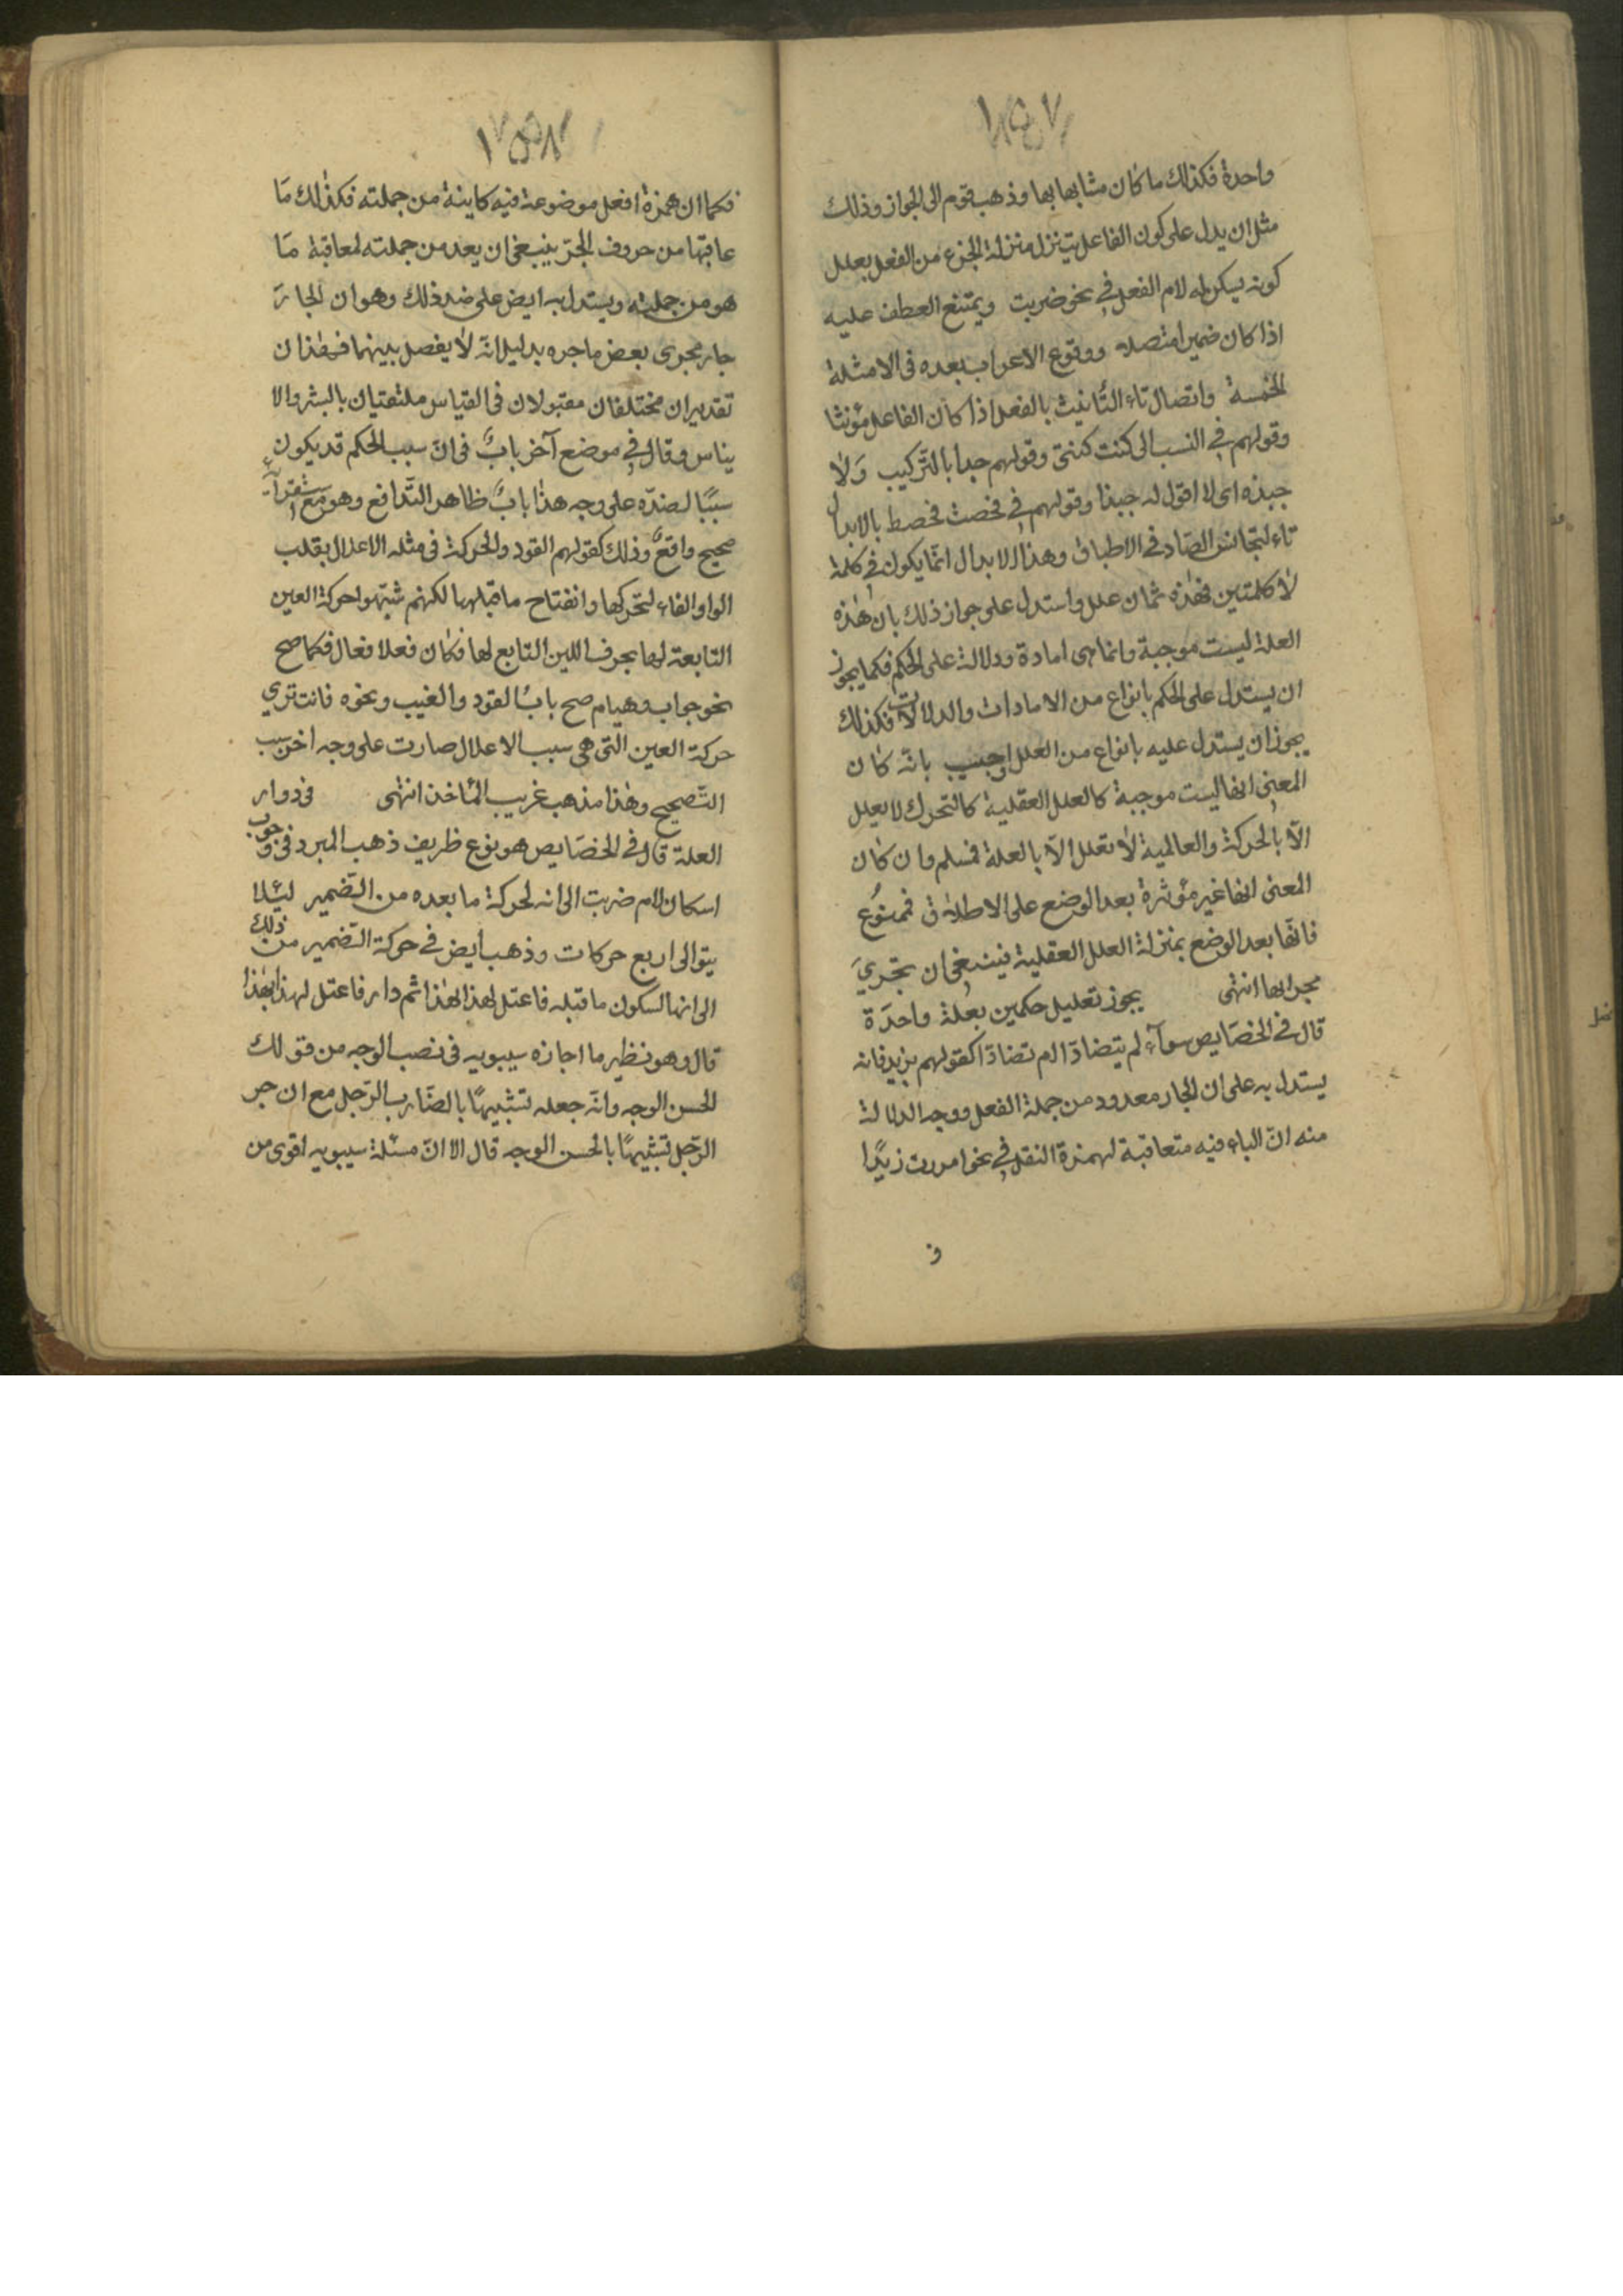 ١٥٧
واحدة فكذلك ما كان مشابها بها وذهب قوم الى الجواز وذلك
مثل ان يدل على كون الفاعل يتنزل منزلة الجزء من الفعل بعلل
كونه يسكن له لام الفعل في نحو ضربت ويمتنع العطف عليه
اذا كان ضميرا متصلا ووقوع الاعراب بعده فى الامثلة
الخمسة واتصال تاء التّأنيث بالفعل اذا كان الفاعل مؤنثا
وقولهم في النسب الى كنت كنتى وقولهم حبذا بالتّركيب وَلا
حبذه اى لا اقول له حبذا وقولهم في فحصت فحصط بالابدال
تاء لتجانس الصّاد في الاطباق وهذا الابدال انمّا يكون في كلمة
لا كلمتين فهذه ثمان علل واستدل على جواز ذلك بان هٰذه
العلة ليست موجبة وانما هى امارة ودلالة على الحكم فكما يجوز
ان يستدل على الحكم بانواع من الامارات والدلالات فكذلك
يجوز ان يستدل عليه بانواع من العلل واجيب بانّه كان
المعنى انها ليست موجبة كالعلل العقلية كالتحرك لا يعلل
الاّ بالحركة والعالمية لا تعلل الاّ بالعلة فمسلم وان كان
المعنى انها غير مؤثرة بعد الوضع على الاطلاق فممنوع
فانّها بعد الوضع بمنزلة العلل العقلية فينبغى ان تجريَ
مجراها انتهى يجوز تعليل حكمين بعلة واحدَة
قال في الخصَايص سوآء لم يتضادّا ام تضادّا كقولهم بزيد فانه
يستدل به على ان الجار معدود من جملة الفعل ووجه الدلالة
منه انّ الباء فيه متعاقبة لهمزة النقل في نحو امررت زيدًا
ف
١٥٨
فكما ان همزة افعل موضوعة فيه كاينة من جملته فكذٰلك مَا
عاقبها من حروف الجرّ ينبغى ان يعد من جملته لمعاقبة مَا
هو من جملته ويستدل به ايض على ضد ذلك وهو ان الجارّ
جار مجرى بعض ما جره بدليل انّه لا يفصل بينهما فهٰذان
تقديران مختلفان مقبولان فى القياس ملتقيتان بالبشر والا
يناس وقال في موضع آخر بابٌ فى انّ سبب الحكم قد يكون
سببًا لضدّه على وجه هذٰا بابٌ ظاهر التّدافع وهو مع استقرآئه
صحيح واقعٌ وذلك كقولهم القود والحركة فى مثله الاعلال بقلب
الواو الفاء لتحركها وانفتاح ما قبلها لكنهم شبّهوا حركة العين
التابعة لها بحرف اللين التابع لها فكان فعلا فعال فكما صح
نحو جواب وهيام صح بابُ القود والغيب ونحوه فانت تري
حركة العين التى هى سبب الاعلال صارت على وجه اخر سبب
التّصحيح وهٰذا مذهب غريب المأخذ انتهى فى دوار
العلة قال في الخصَايص هو نوع ظريف ذهب المبرد فى وجوب
اسكان لام ضربت الى انه لحركة ما بعده من الضمير لئلا
يتوالى اربع حركات وذهب أيض في حركة الضمير من ذلك
الى انها لسكون ما قبله فاعتل لهذا بهٰذا ثم دار فاعتل لهذا بهٰذا
قال وهو نظير ما اجازه سيبويه فى نصب الوجه من قولك
الحسن الوجه وانّه جعله تشبيهًا بالضّارب الرّجل مع ان جر
الرّجل تشبيهًا بالحسن الوجه قال الا انّ مسئلة سيبويه اقوى من